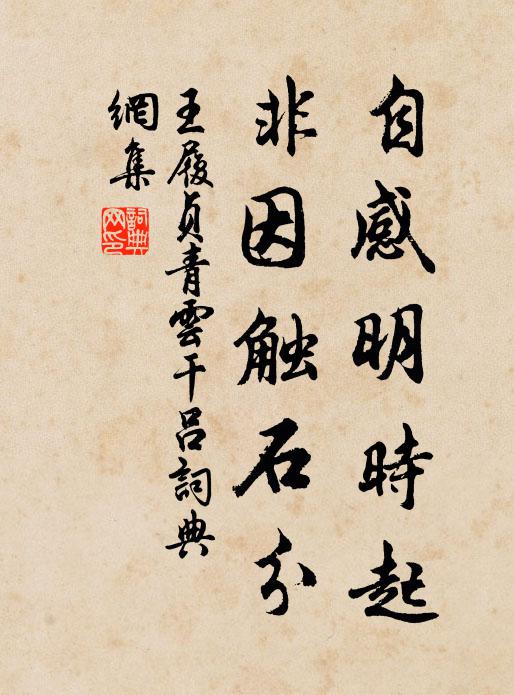 自感明時起
非因触石分
王履貞青雲干呂詞典
網集
詞典
网印